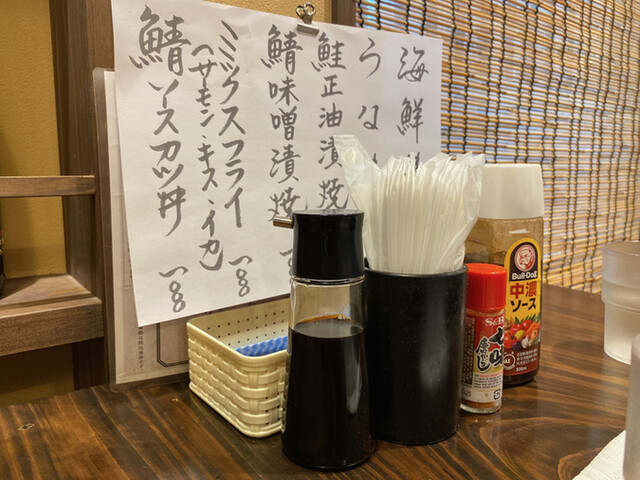 海鮮
うな
鮭正油漬焼
鯖味噌漬焼
ミックスフライ
(サモン・キス・イカ)
一〇〇
鯖ソースカツ丼
一〇〇
Bull-Dog
中濃
ソース
S&B
七味